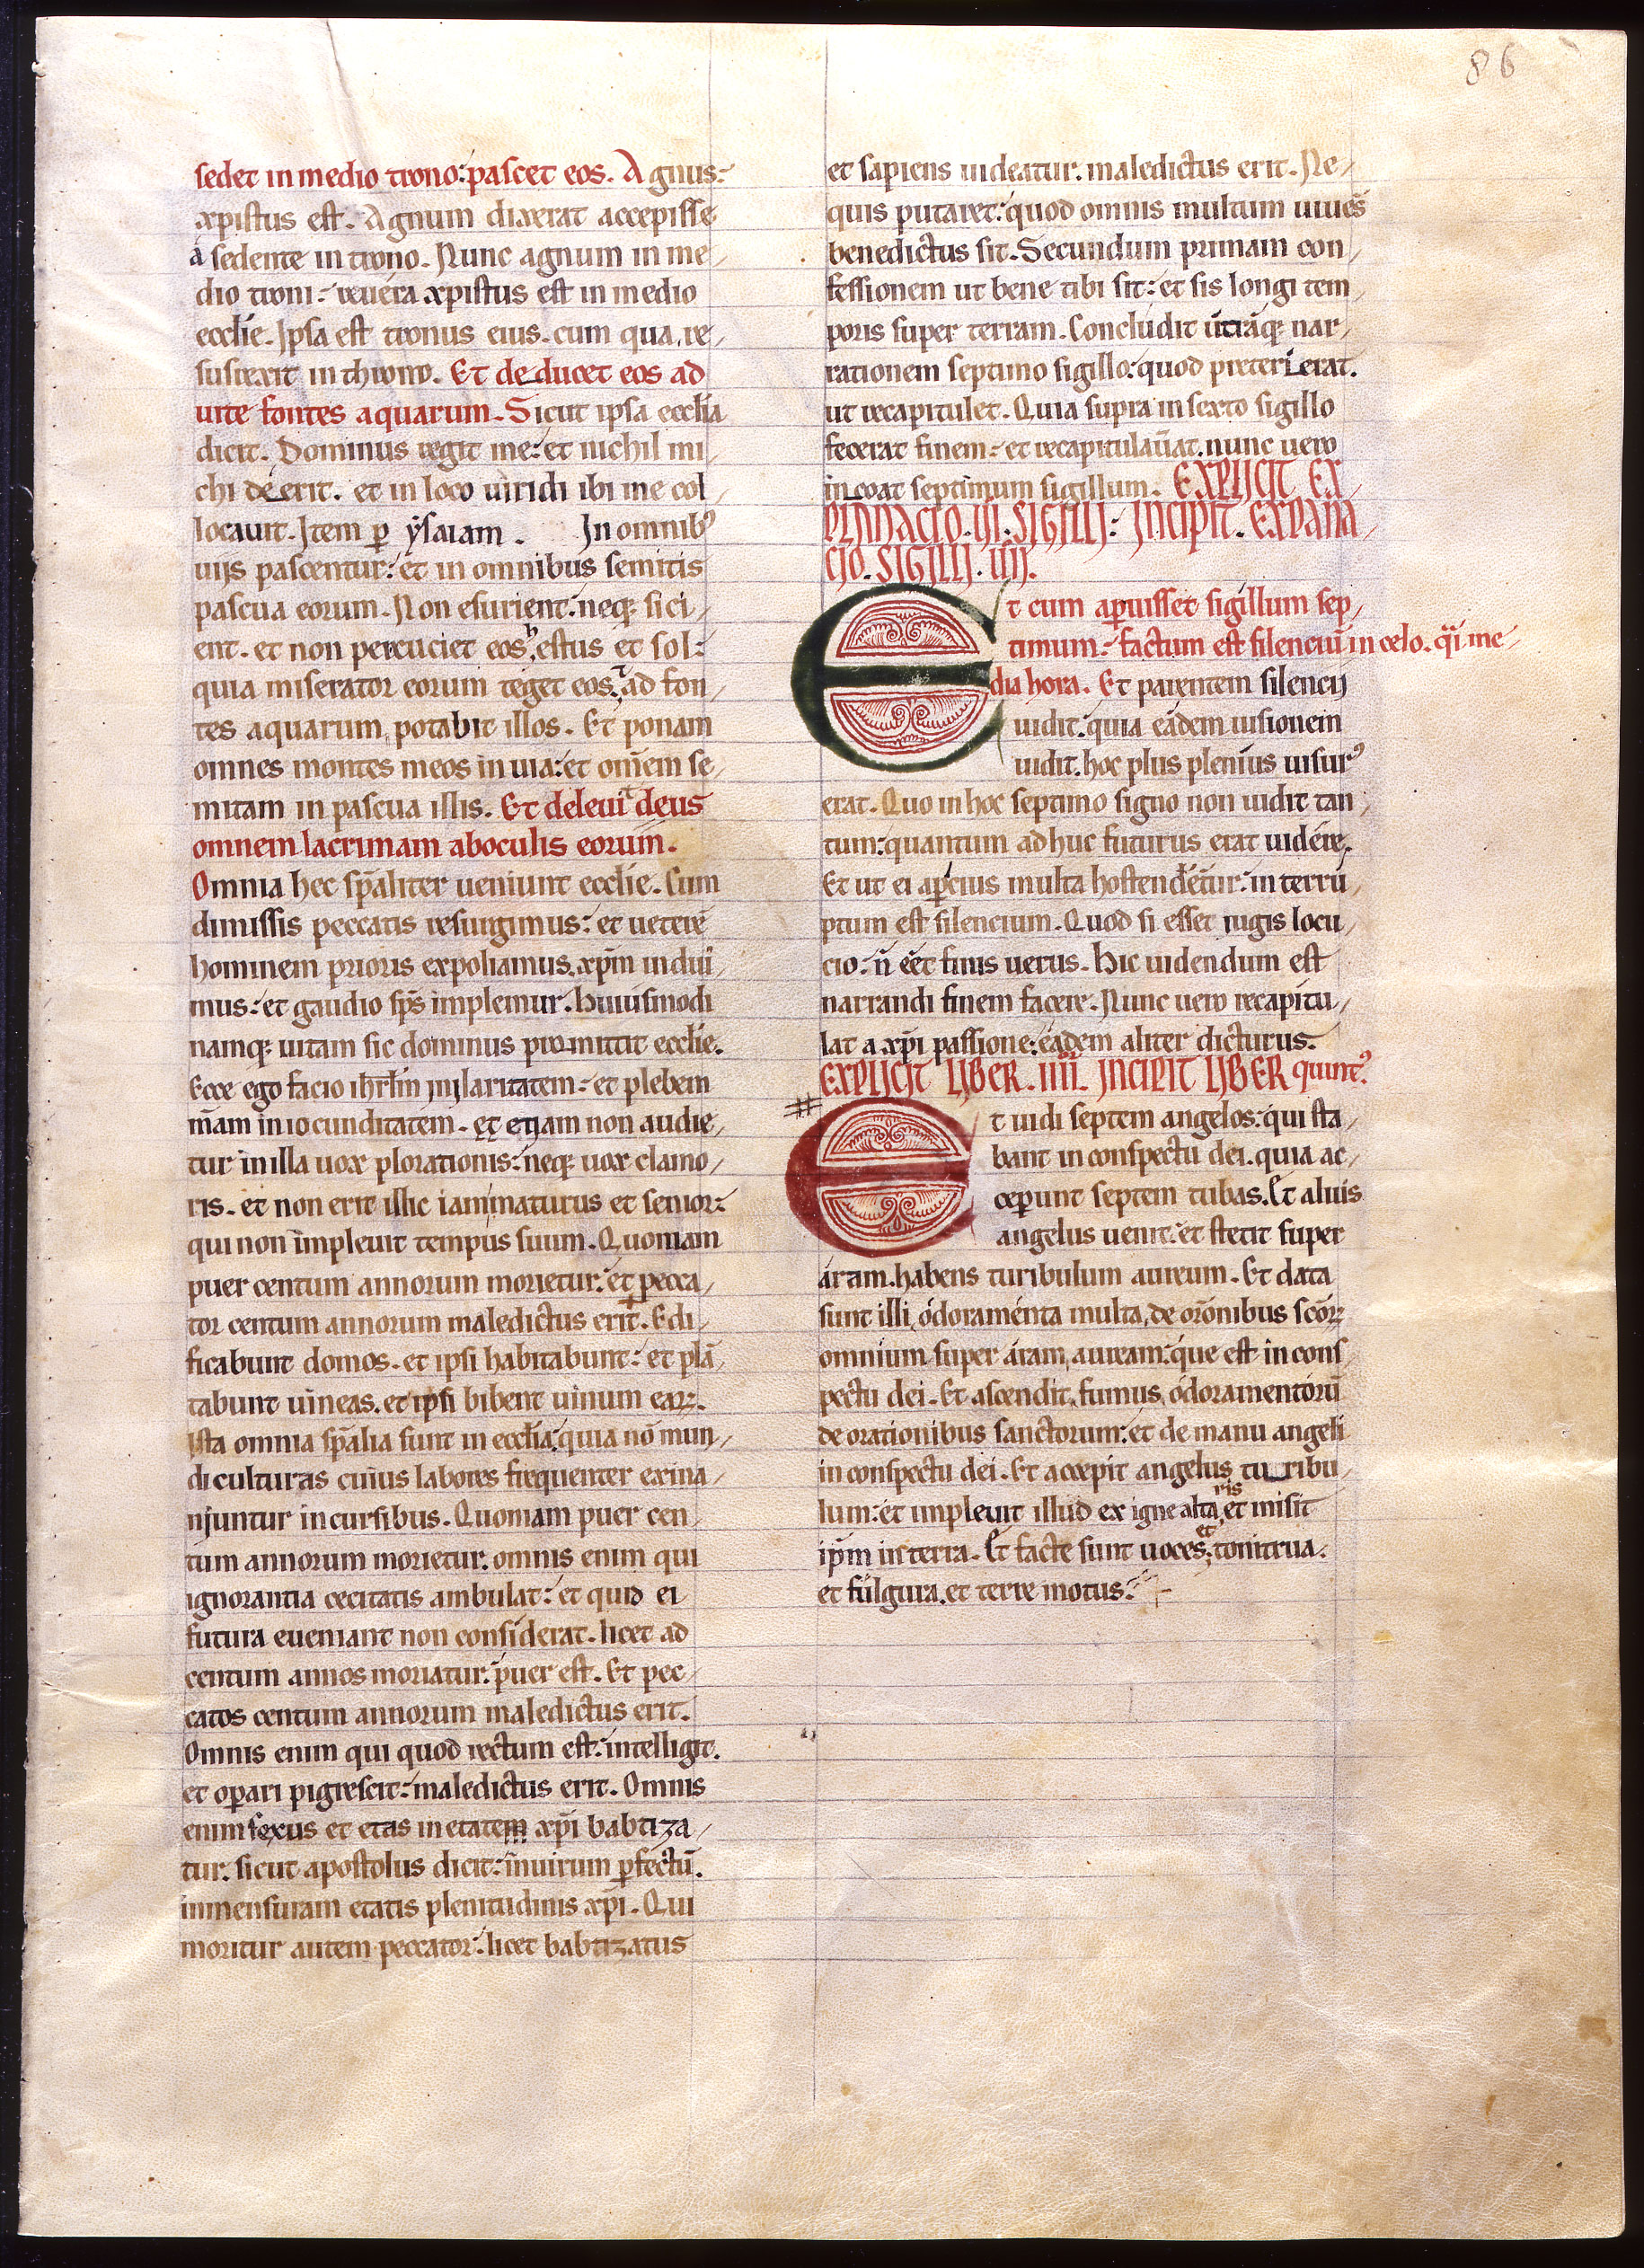 86
sedet in medio trono: pascet eos. Agnus:
xpistus est. Agnum dixerat accepisse
a sedente in trono. Nunc agnum in me/
dio troni: reuera xpistus est in medio
ecclie. Ipsa est tronus eius. cum qua re/
surrexit in throno. Et deducet eos ad
uite fontes aquarum. Sicut ipsa ecclia
dicit. Dominus regit me: et nichil mi/
chi deerit. et in loco uiridi ibi me col/
locauit. Item p ysaiam. In omnib'
uiis pascentur: et in omnibus semitis
pascua eorum. Non esurient: neq; sici/
ent. et non percuciet eos hestus et sol:
quia miserator eorum teget eos, t ad fon/
tes aquarum potabit illos. Et ponam
omnes montes meos in uia: et omem se/
mitam in pascua illis. Et deleuit deus
omnem lacrimam aboculis eorum.
Omnia hec spaliter ueniunt ecclie. Cum
dimissis peccatis resurgimus: et ueterē
hominem prioris expoliamus, xpm indui/
mus: et gaudio sps implemur. Huiusmodi
namq; uitam sic dominus promittit ecclie.
Ecce ego facio ihrlm hilaritatem: et plebem
mam in iocunditatem. et etiam non audie/
tur in illa uox plorationis: neq; uox clamo/
ris. et non erit illic iam maturus et senior:
qui non impleuit tempus suum. Quoniam
puer centum annorum morietur: et pecca/
tor centum annorum maledictus erit. Edi/
ficabunt domos. et ipsi habitabunt: et plā/
tabunt uineas. et ipsi bibent uinum eaꝝ.
Ista omnia spalia sunt in ecclia: quia nō mun/
di culturas cuius labores frequenter exina/
niuntur incursibus. Quoniam puer cen/
tum annorum morietur. omnis enim qui
ignorantia cecitatis ambulat: et quid ei
futura eueniant non considerat. licet ad
centum annos moriatur: puer est. Et pec/
catos centum annorum maledictus erit.
Omnis enim qui quod rectum est: intelligit.
et opari pigrescit: maledictus erit. Omnis
enim sexus et etas in etatem xpi babtiza/
tur. sicut apostolus dicit: inuirum pfectū.
inmensuram etatis plenitudinis xpi. Qui
moritur autem peccator: licet babtizatus
et sapiens uideatur. maledictus erit. Ne/
quis putaret: quod omnis multum uiues
benedictus sit. Secundum primam con/
fessionem ut bene tibi sit: et sis longi tem/
poris super terram. Concludit utraq; nar/
rationem septimo sigillo: quod preterierat.
ut recapitulet. Quia supra in sexto sigillo
fecerat finem: et recapitulauat. nunc uero
incoat septimum sigillum. EXPLICIT EX/
PLANACIO. III. SIGILLI: INCIPIT. EXPANA/
CIO. SIGILLI. IIII.
Et cum apuisset sigillum sep/
timum: factum est silenciū in celo. qi me/
dia hora. Et parentem silencii
uidit: quia eadem uisionem
uidit. hoc plus plenius uisur'
erat. Quo in hoc septimo signo non uidit tan/
tum: quantum adhuc futurus erat uidere.
Et ut ei apcius multa hostenderetur: interru/
ptum est silencium. Quod si esset iugis locu/
cio: n eet finis uerus. Hic uidendum est
narrandi finem facere. Nunc uero recapitu/
lat a xpi passione: eadem aliter dicturus.
EXPLICIT LIBER. IIII. INCIPIT LIBER quint'.
Et uidi septem angelos: qui sta/
bant in conspectu dei. quia ac/
ceperunt septem tubas. Et aluis
angelus uenit: et stetit super
aram. habens turibulum aureum. Et data
sunt illi odoramenta multa, de orōnibus scōꝝ
omnium super aram auream: que est in cons/
pectu dei. Et ascendit fumus odoramentorū
de orationibus sanctorum: et de manu angeli
in conspectu dei. Et accepit angelus turibu/
lum: et impleuit illud ex igne altaris et misit
ipm in terra. Et facte sunt uoces, et tonitrua.
et fulgura. et terre motus: